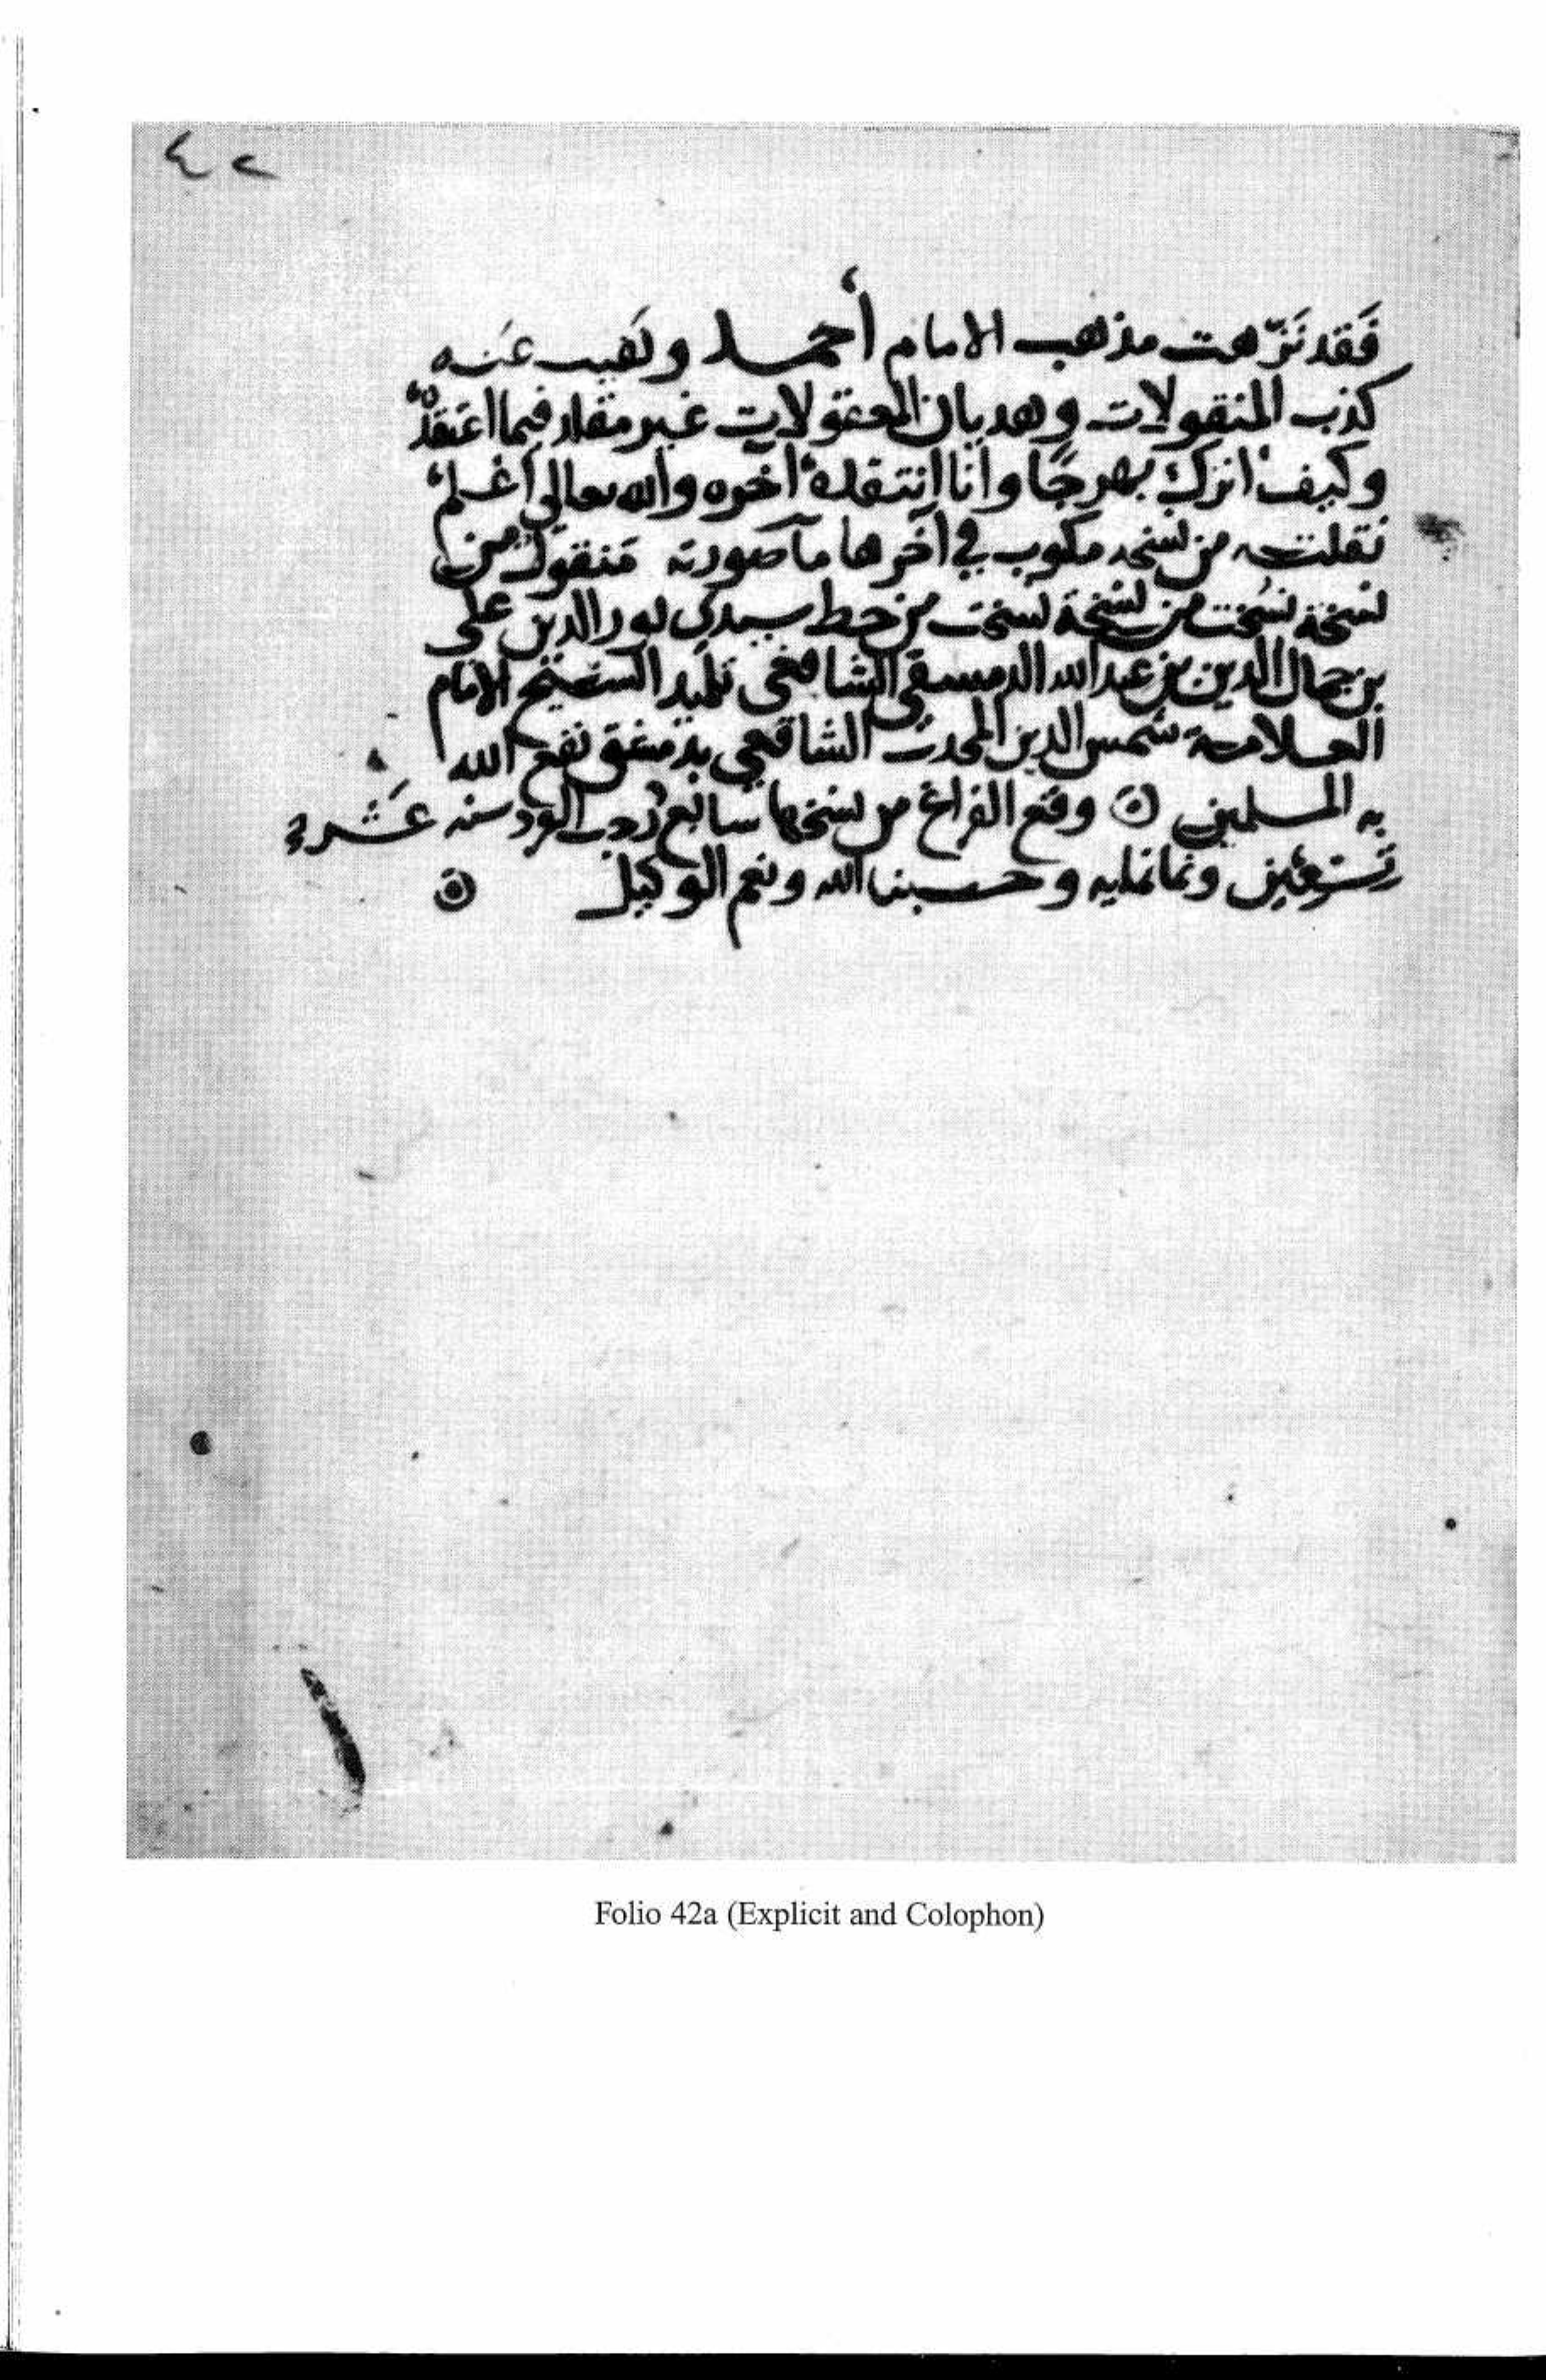 ٤٢
فَقد نَزّهت مذهب الامام أحمد ونفيت عَنه
كذب المنقولات وهديان المعقولات غير مقلد فيما اعتقدُه
وكيف اترك بهرجًا وأنا انتقده آخره والله تعالى أعلم
نقلته من نسخه مكتوب في آخرها ما صورته منقول من
نسخة نُسخت من نسخة نسخت من خط سيدي نور الدين على
بن جمال الدين بن عبد الله الدمسقي الشافعي تلميد الشيخ الامام
العلامة شمس الدين المحدث الشافعي بدمشق نفع الله
به المسلمين ۞ وقع الفراغ من نسخها سابع رجب الفرد سنه عَشرة
وثمانمايه وحسبنا الله ونعم الوكيل ۞
Folio 42a (Explicit and Colophon)